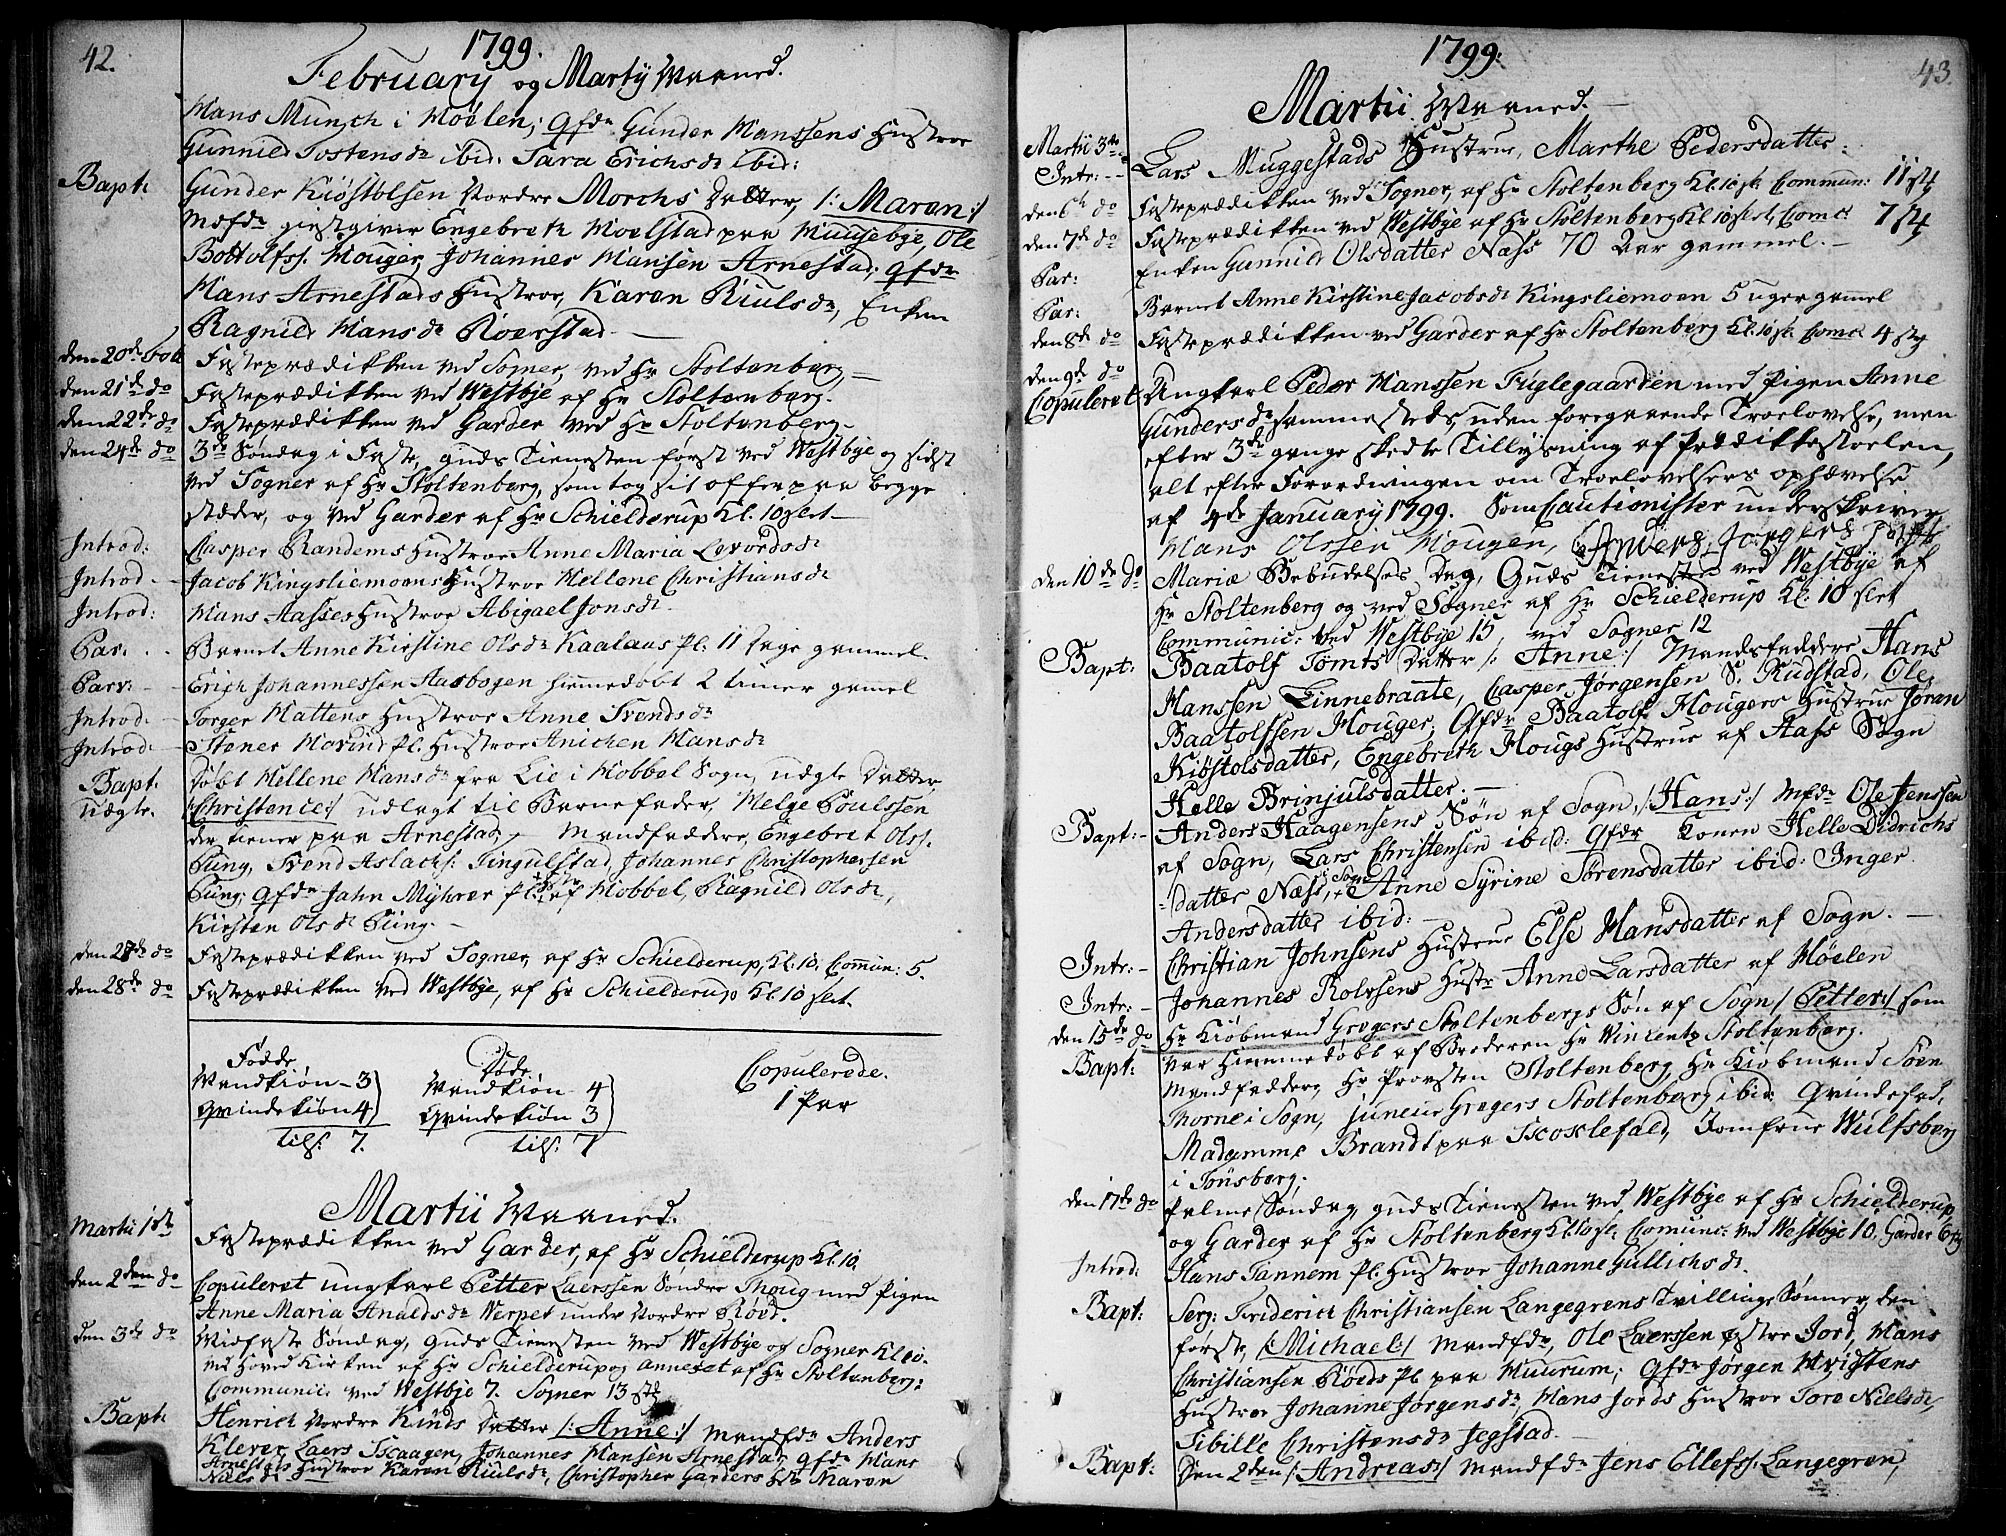 42.
1799.
February og Martij Maaned.
Hans Munch i Møelen; Qfdr Gunder Hanssens Hustroe
Gunnild Tostensdr ibid. Sara Erichsdr ibid:
Bapt: Gunder Kiøstolsen Nordre Morchs Datter, /: Maren :/
Mdfdr giestgiver Engebreth Moelstad paa Huusebye, Ole
Bottolfss. Houger, Johannes Hansen Arnestad; Qfdr
Hans Arnestads Hustroe, Karen Riulsdr, Enken
Ragnild Hansdr Roerstad
den 20de Feb Fasteprædikken ved Sogner, ved Hr Stoltenberg, —
den 21de do Fasteprædikken ved Westbye af Hr Stoltenberg.
den 22de do Fasteprædikken ved Garder ved Hr Stoltenberg —
den 24de do 3de Søndag i Faste, Guds Tienesten først ved Westbye og sidst
ved Sogner af Hr Stoltenberg, som tog sit offer paa begge
stæder, og ved Garder af Hr Schielderup Kl. 10 slet —
Introd: Casper Randems Hustroe Anne Maria Levordsdr
Introd. — Jacob Kingsliemoens Hustroe Hellene Christiansdr
Introd: Hans Aasses Hustroe Abigael Jonsdr.
Par: Barnet Anne Kirstine Olsdr Kaalaas Pl: 11 Dage gammel.
Parv: — Erich Johannessen Aasbogen hiemmedøbt 2 timer gamel
Introd. — Torger Hattens Hustroe Anne Svendsdr
Introd. — Stener Hovind Pl. Hustroe Anichen Hansdr
Bapt. Døbt Hellene Hansdr fra Lie i Hobbel Sogn, uægte Datter,
Uægte. /: Christence :/ udlagt til Barnefader, Helge Poulssen
der tiener paa Arnestad, — Mandfaddere, Engebret Olss.
Pung, Svend Aslachs: Tingulstad, Johannes Christophersen
Pung; Qfdr Jahn Myhrer Pl: af Hobbel, Ragnild Olsdr,
Kirsten Olsdr Pung. —
den 27de do Fasteprædikken ved Sogner, af Hr Schielderup, Kl: 10. Commun: 5.
den 28de do Fasteprædikken ved Westbye, af Hr Schielderup Kl. 10 slet.
Fødde.
Mandkiøn — 3
Qvindekiøn 4
tils: 7.
Døde.
Mandkiøn — 4
Qvindekiøn 3
tils: 7
Copulerede.
1 Par
Martii Maaned.
Martii 1ste Fasteprædikken ved Garder, af Hr Schielderup Kl. 10.
den 2den do Copuleret ungkarl Petter Laerssen Søndre Thoug med Pigen
Anne Maria Analdsdr Werpet under Nordre Røed.
den 3de do Midfaste Søndag, Guds Tienesten ved Westbye og Sogner Kl 10.
ved Hoved Kirken af Hr Schielderup og annexet af Hr Stoltenberg:
Communic. ved Westbye 7. Sogner 13 st.
Bapt: Henrich Nordre Kinds Datter /: Anne :/ Mandfdr Anders
Klever, Laers Skaagen, Johannes Hansen Arnestad, Qfdr Hans
Arnestads Hustroe Karen Riulsdr, Christopher Garders Hr Maren
Nielsdr
43.
1799.
Martii Maaned. —
Martii 3die
Intr: — Lars Muggestads Hustrue, Marthe Pedersdatter.
den 6te do Fasteprædikken ved Sogner, af Hr Stoltenberg Kl. 10 sl. Commun: 11 st
den 7de do Fasteprædikken ved Westbye af Hr Stoltenberg Kl 10 slet, Comc: 7 st
Par: Enken Gunnild Olsdatter Næss 70 Aar gammel. —
Par: Barnet Anne Kirstine Jacobsdr Kingsliemoen 5 uger gamel
den 8de do Fasteprædikken ved Garder af Hr Stoltenberg Kl. 10 sl. Comc. 4 st
den 9de do
Copuleret Ungkarl Peder Hanssen Fuglegaarden med Pigen Anne
Gundersdr sammesteds, uden foregaaende Troelovelse, men
efter 3de gange skedte Tillysning af Prædikkestoelen,
alt efter Forordningen om Troelovelsers ophævelse
af 4de January 1799. Som Cautionister underskriver
Hans Olssen Hougen,
den 10de do Mariæ Bebudelses Dag, Guds Tienesten ved Westbye af
Hr Stoltenberg og ved Sogner af Hr Schielderup Kl: 10 slet
Communic: ved Westbye 15, ved Sogner 12
Bapt: Baatolf Tømts Datter /: Anne :/ Mandsfaddere Hans
Hanssen Linnebraate, Casper Jørgensen S. Rudstad, Ole
Baatolssen Houger, Qfdr Baatolf Hougers Hustrue Jøran
Kiøstolsdatter, Engebreth Hougs Hustrue af Aass Sogn
Helle Brinjulsdatter. —
Bapt: — Anders Haagensens Søn af Sogn, /: Hans :/ Mfdr Ole Jenssen
af Sogn, Lars Christensen ibid: Qfdr Konen Helle Didrichs
datter Næss, Anne Syrine Sørensdatter ibid: Inger
Andersdatter ibid: —
Intr: — Christian Johnsens Hustrue Else Hansdatter af Sogn. —
Intr: — Johannes Rolvsens Hustr Anne Larsdatter af Høelen
den 15de do Hr Kiøbmand Gregers Stoltenbergs Søn af Sogn /: Petter :/ som
Bapt: var Hiemmedøbt af Broderen Hr Vincentz Stoltenberg.
Mandfaddere, Hr Provsten Stoltenberg, Hr Kiøbmand Søen
Thorne i Sogn, Gregers Stoltenberg ibid: Qvindefad.
Madamme Brandt paa Skoklefald, Jomfrue Wulfsberg
i Tønsberg.
den 17de do Palme Søndag, Guds Tienesten ved Westbye af Hr Schielderup
og Garder af Hr Stoltenberg Kl: 10 sl: Comunc: ved Westbye 10. Garder 6 st
Introd: Hans Tannem Pl. Hustroe Johanne Gullichsdr.
Bapt: Serg: Friderich Christiansen Langegrens Tvillinge Sønner, den
første, /: Michael :/ Mandfdr, Ole Laerssen østre Jord, Hans
Christiansen Røeds Pl. paa Huurum; Qfdr Jørgen Hvidstens
Hustroe Johanne Jørgensdr, Hans Jords Hustroe Tore Nielsdr,
Sibille Christensdr Jegstad. —
Bapt: Den 2den /: Andreas :/ Mandfdr Jens Ellefss. Langegren,